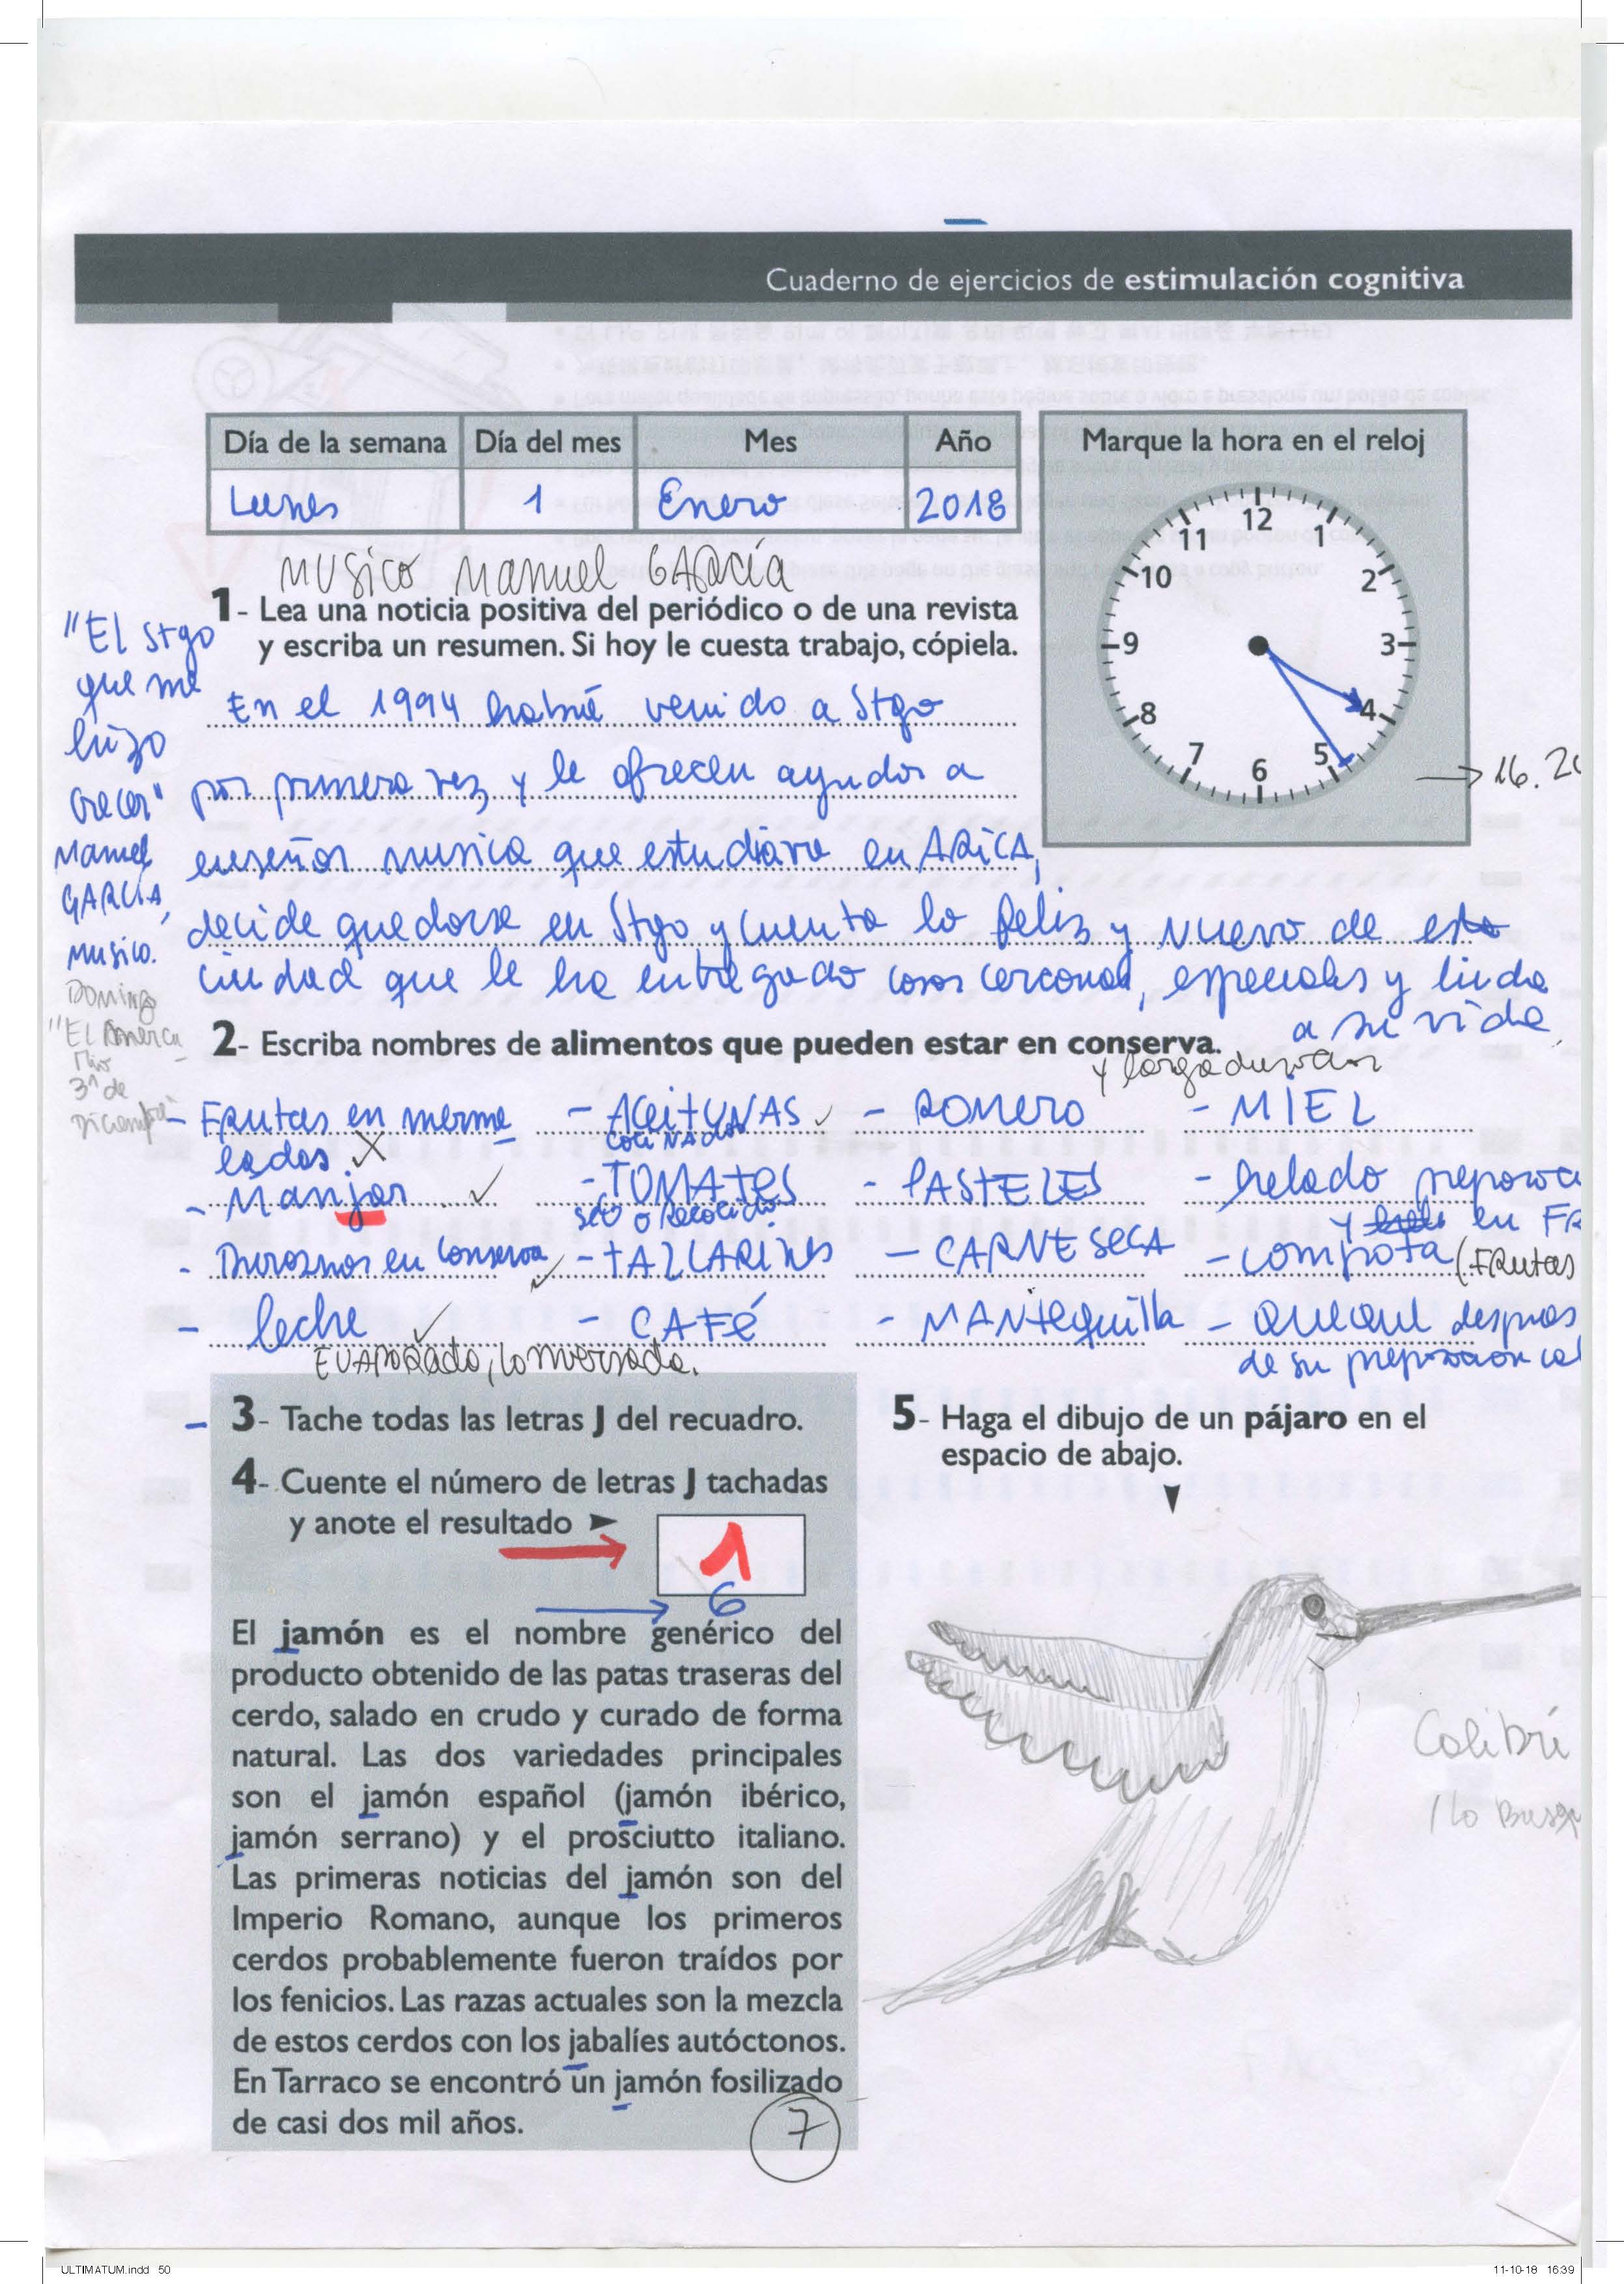 Cuaderno de ejercicios de estimulación cognitiva
Día de la semana Día del mes Mes Año
Lunes 1 Enero 2018
Marque la hora en el reloj
12
1
2
3
4
5
6
7
8
9
10
11
16.20
MUSICO MANUEL GARCÍA
1- Lea una noticia positiva del periódico o de una revista
y escriba un resumen. Si hoy le cuesta trabajo, cópiela.
"El Stgo
que me
hizo
crecer"
Manuel
GARCÍA,
Musico.
DOMINGO
"El
31 de
Diciembre"
En el 1994 había venido a Stgo
por primera vez y le ofrecen ayudar a
enseñar musica que estudiara en ARICA,
decide quedarse en Stgo y cuenta lo feliz y nuevo de esta
ciudad que le ha entregado cosas, especiales y linda
a su vida
2- Escriba nombres de alimentos que pueden estar en conserva.
y larga duracion
- Frutas en merme
ladas. X
- ACEITUNAS
- ROMERO
- MIEL
- Manjar
COCINADOS
- TOMATES
SECO O RECOCIDO
- PASTELES
- helado
y en
- Duraznos en conserva
- TALLARINES
- CARNE SECA
- COMPOTA (FRUTAS
- leche
EVAPORADA, conservada.
- CAFÉ
- MANTEQUILLA
- QUEQUE despues
de su preparacion
3- Tache todas las letras J del recuadro.
4- Cuente el número de letras J tachadas
y anote el resultado
1
6
El jamón es el nombre genérico del
producto obtenido de las patas traseras del
cerdo, salado en crudo y curado de forma
natural. Las dos variedades principales
son el jamón español (jamón ibérico,
jamón serrano) y el prosciutto italiano.
Las primeras noticias del jamón son del
Imperio Romano, aunque los primeros
cerdos probablemente fueron traídos por
los fenicios. Las razas actuales son la mezcla
de estos cerdos con los jabalíes autóctonos.
En Tarraco se encontró un jamón fosilizado
de casi dos mil años.
7
5- Haga el dibujo de un pájaro en el
espacio de abajo.
Colibrí
ULTIMATUM.indd 50
11-10-18 16:39